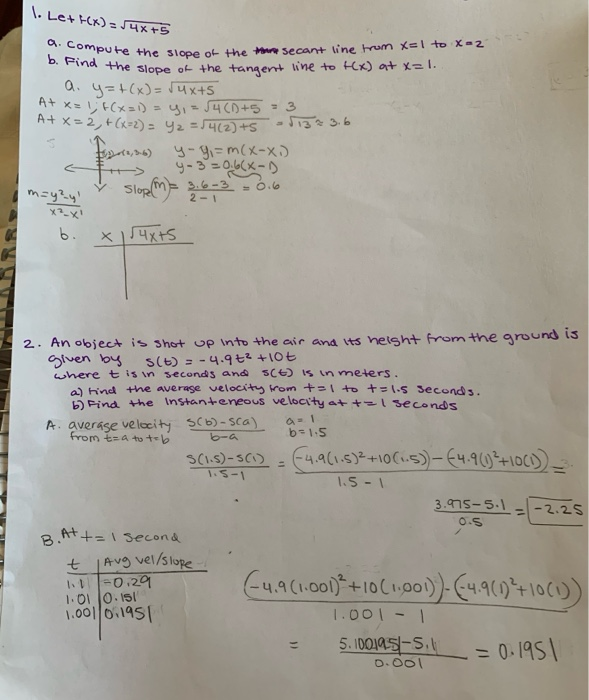 1. Let f(x) = √4x+5
a. Compute the slope of the secant line from x=1 to x=2
b. Find the slope of the tangent line to f(x) at x=1.
a. y=f(x)= √4x+5
At x=1, f(x=1) = y₁ = √4(1)+5 = 3
At x=2, f(x=2) = y₂ = √4(2)+5 = √13 ≈ 3.6
(2,3.6) y-y₁=m(x-x₁)
y-3=0.6(x-1)
m=y²-y¹/x²-x¹ Slope(m)= 3.6-3/2-1 = 0.6
b. x | √4x+5
2. An object is shot up into the air and its height from the ground is
given by s(t) = -4.9t² +10t
where t is in seconds and s(t) is in meters.
a) find the average velocity from t=1 to t=1.5 seconds.
b) Find the instanteneous velocity at t=1 seconds
A. average velocity s(b)-s(a)/b-a a=1
from t=a to t=b b=1.5
s(1.5)-s(1)/1.5-1 = (-4.9(1.5)²+10(1.5))-(-4.9(1)²+10(1))/1.5-1 =
3.975-5.1/0.5 = -2.25
B. At t=1 second
t | Avg vel/slope
1.1 | -0.29
1.01 | 0.151
1.001 | 0.1951
(-4.9(1.001)²+10(1.001))-(-4.9(1)²+10(1))/1.001-1
= 5.1001951-5.1/0.001 = 0.1951